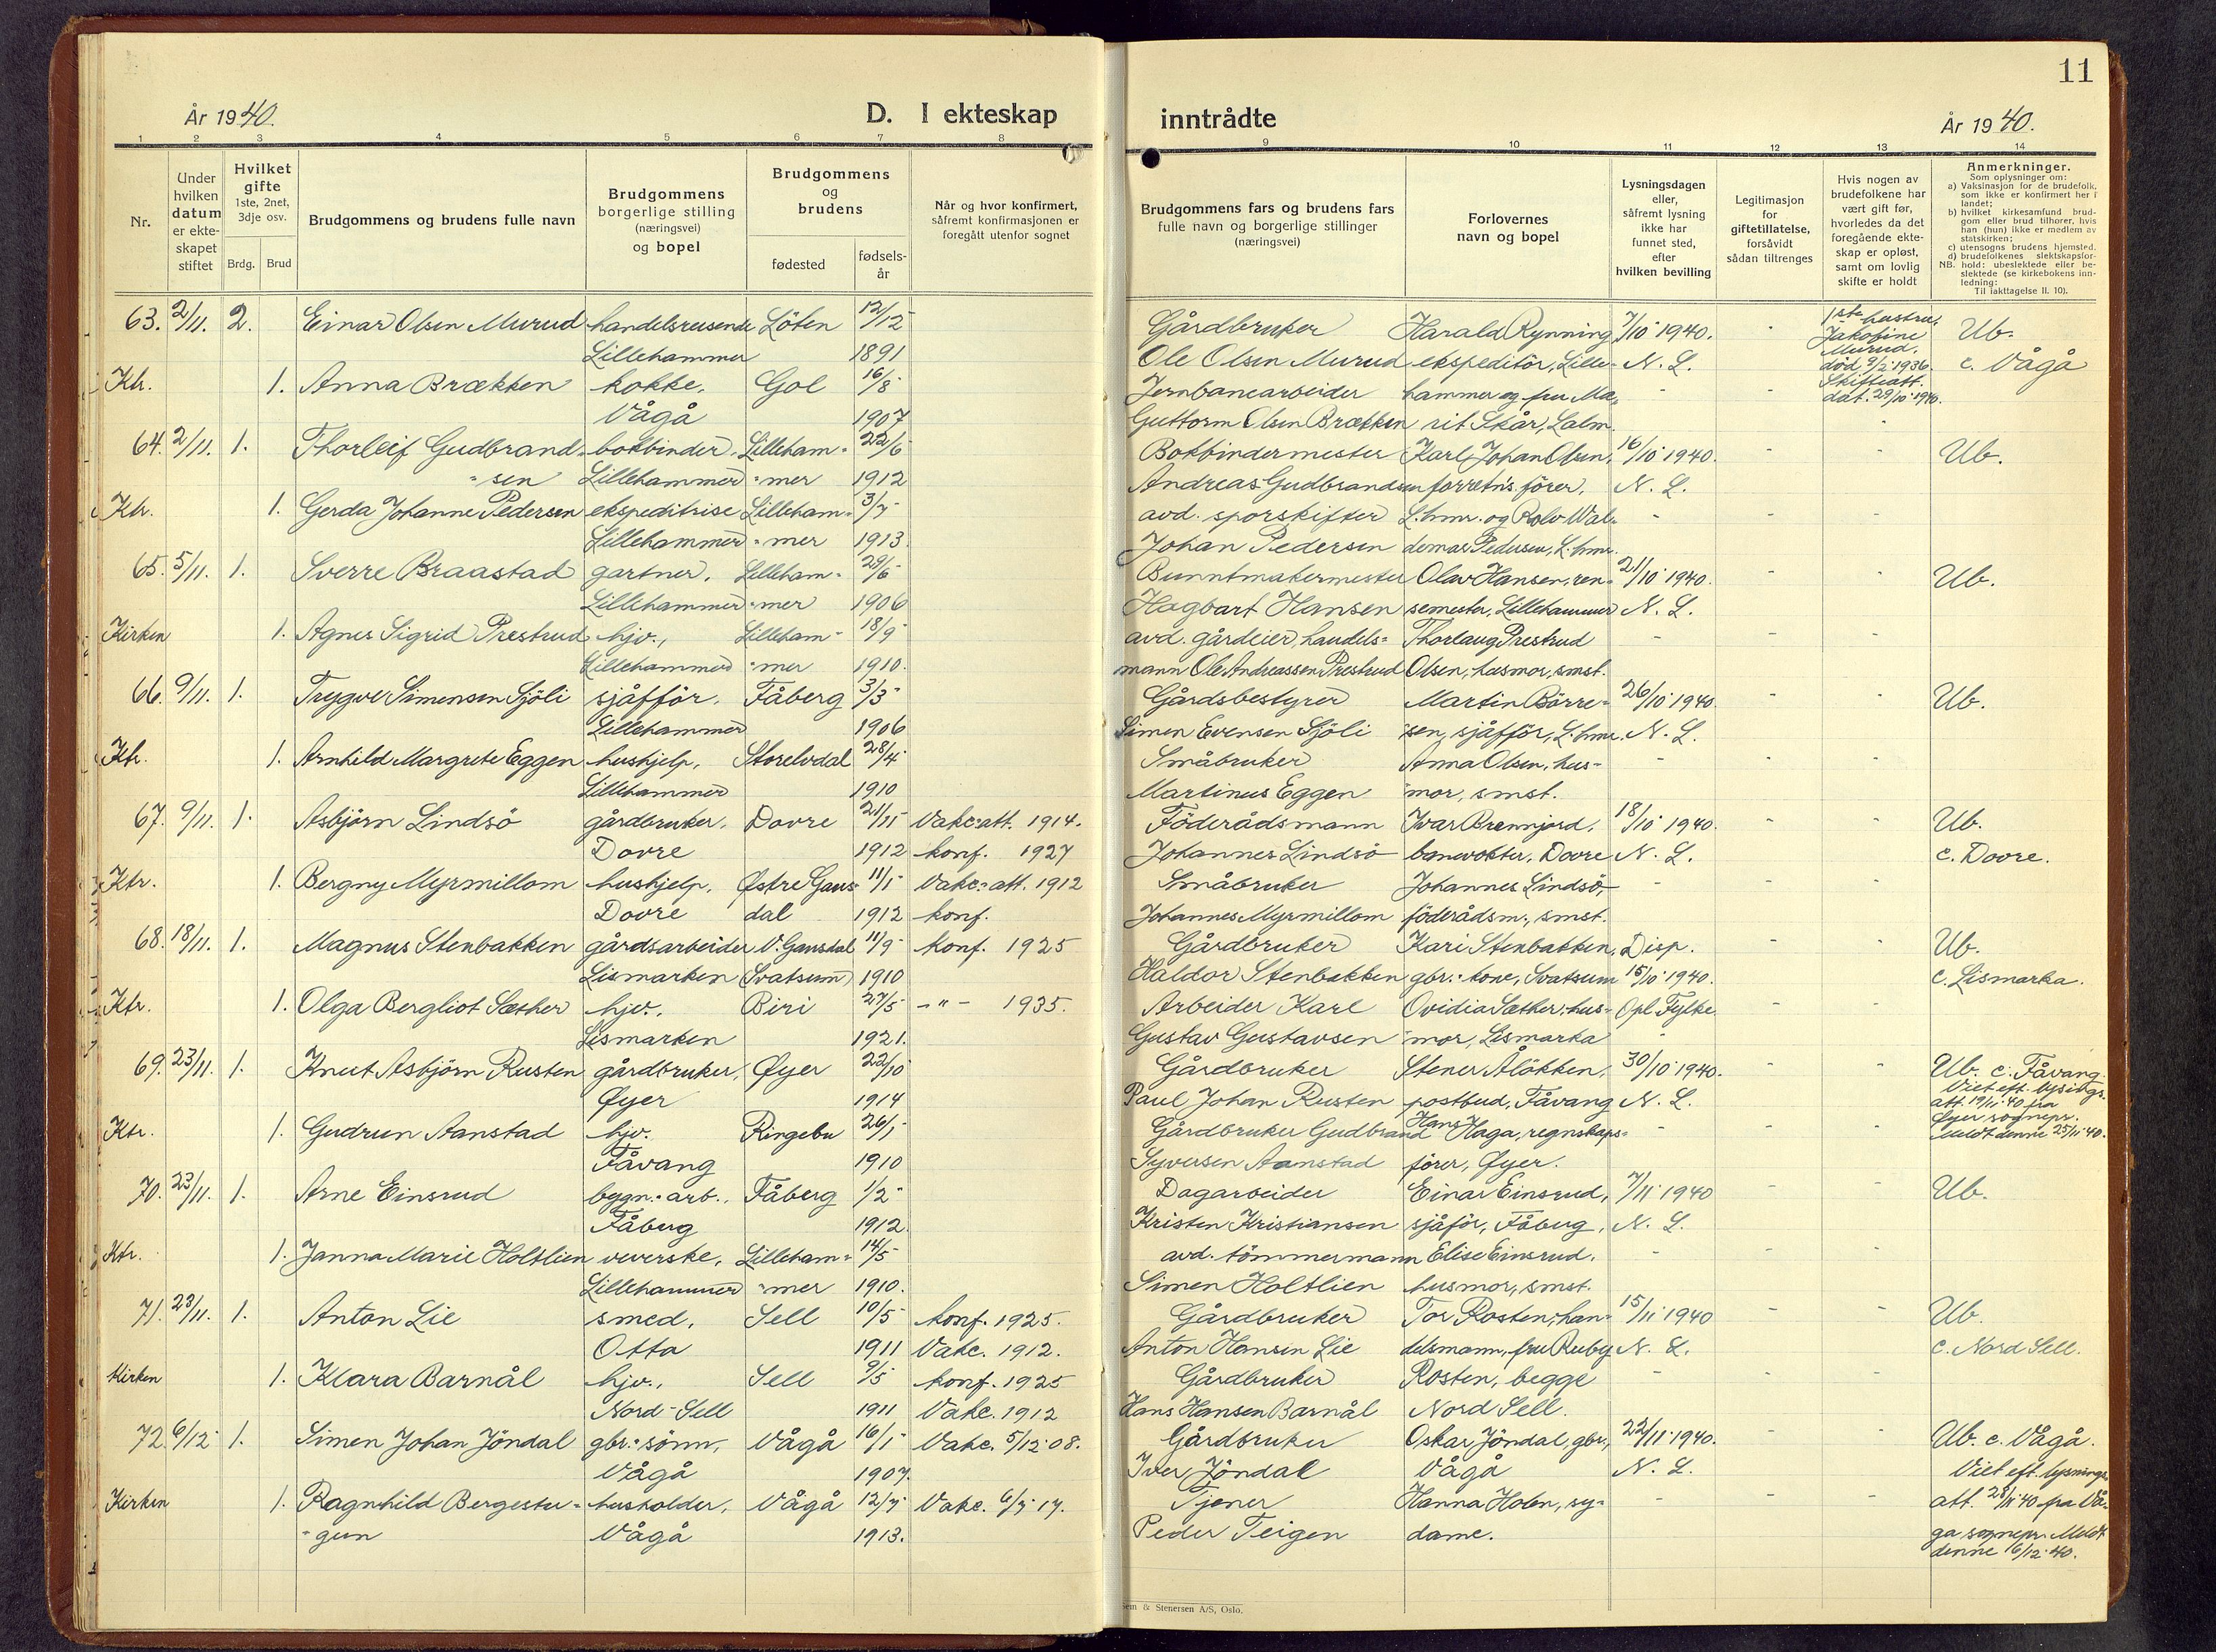 År 1940.
D. I ekteskap
1 2 3 4 5 6 7 8
Nr.
Under hvilken datum er ekteskapet stiftet
Hvilket gifte 1ste, 2net, 3dje osv.
Brdg. Brud
Brudgommens og brudens fulle navn
Brudgommens borgerlige stilling (næringsvei) og bopel
Brudgommens og brudens
fødested
fødselsår
Når og hvor konfirmert, såfremt konfirmasjonen er foregått utenfor sognet
63. 2/11. 2. Einar Olsen Murud handelsreisende Löten 12/12
Lillehammer 1891
Ktr. 1. Anna Brækken kokke, Gol 16/8
Vågå 1907
64. 2/11. 1. Thorleif Gudbrand- bokbinder, Lilleham- 22/6
-sen Lillehammer -mer 1912
Ktr. 1. Gerda Johanne Pedersen ekspeditrise Lilleham- 3/7
Lillehammer -mer 1913
65. 5/11. 1. Sverre Braastad gartner, Lilleham- 29/6
Lillehammer -mer 1906
Kirken 1. Agnes Sigrid Prestrud hjv., Lilleham- 18/9
Lillehammer -mer 1910.
66. 9/11. 1. Trygve Simensen Sjöli sjåfför, Fåberg 3/3
Lillehammer 1906
Ktr. 1. Arnhild Margrete Eggen hushjelp, Storelvdal 28/4
Lillehammer 1910
67. 9/11. 1. Asbjörn Lindsö gårdbruker, Dovre 21/11 Vakc-att. 1914.
Dovre 1912 konf. 1927
Ktr. 1. Bergny Myrmillom hushjelp, Østre Gaus- 11/1 Vakc-att. 1912
Dovre dal 1912 konf.
68. 18/11. 1. Magnus Stenbakken gårdsarbeider V. Gausdal 11/9 konf. 1925
Lismarken (Svatsum) 1910
Ktr. 1. Olga Bergliot Sæther hjv., Biri 27/5 -"- 1935.
Lismarken 1921.
69. 23/11. 1. Knut Asbjörn Rusten gårdbruker, Øyer 22/10
Øyer 1914
Ktr. 1. Gudrun Aanstad hjv. Ringebu 26/1
Fåvang 1910
70. 23/11. 1. Arne Einsrud bygn.-arb., Fåberg 1/2
Fåberg 1912.
Ktr. 1. Janna Marie Holtlien veverske, Lilleham- 14/5
Lillehammer -mer 1910.
71. 23/11. 1. Anton Lie smed, Sell 10/5 konf. 1925.
Otta 1911 Vakc. 1912.
Kirken 1. Klara Barnål hjv., Sell 9/5 konf. 1925
Nord-Sell 1911 Vakc. 1912
72. 6/12 1. Simen Johan Jöndal gbr.-sönn, Vågå 16/1 Vakc. 5/12 08.
Vågå 1907.
Kirken 1. Ragnhild Bergestu- husholder, Vågå 12/7 Vakc. 6/7 17.
-gun Vågå 1913.
11
inntrådte
År 1940.
9 10 11 12 13 14
Brudgommens fars og brudens fars fulle navn og borgerlige stillinger (næringsvei)
Forlovernes navn og bopel
Lysningsdagen eller, såfremt lysning ikke har funnet sted, efter hvilken bevilling
Legitimasjon for giftetillatelse, forsåvidt sådan tiltrenges
Hvis nogen av brudefolkene har vært gift før, hvorledes da det foregående ekteskap er opløst, samt om lovlig skifte er holdt
Anmerkninger.
Som oplysninger om:
a) Vaksinasjon for de brudefolk, som ikke er konfirmert her i landet;
b) hvilket kirkesamfund brudgom eller brud tilhører, hvis han (hun) ikke er medlem av statskirken;
c) utensogns brudens hjemsted.
d) brudefolkenes slektskapsforhold: ubeslektede eller beslektede (se kirkebokens innledning:
NB.
Til iakttagelse II. 10).
Gårdbruker Harald Rynning, 7/10 1940. - 1ste hustru, Jakobine Murud, död 9/2 1936. Skifteatt. dat. 29/10 1940. Ub.
Ole Olsen Murud ekspeditör, Lille- N. L. c. Vågå
Jernbanearbeider hammer og fru Ma-
Guttorm Olsen Brækken rit Skår, Lalm.
Bokbindermester Karl Johan Olsen, 16/10 1940. - - Ub.
Andreas Gudbrandsen forretn.s förer, N. L.
avd. sporskifter L.hmr. og Rolv Wal- - - -
Johan Pedersen demar Pedersen, L.hmr.
Buntmakermester Olav Hansen, ren- 21/10 1940. - - Ub.
Hagbart Hansen semester, Lillehammer N. L.
avd. gårdeier, handels- Thorlaug Prestrud - - -
mann Ole Andreassen Prestrud Olsen, husmor, smst.
Gårdsbestyrer Martin Börre- 26/10 1940. - - Ub.
Simen Evensen Sjöli sen, sjåfför, L.hmr. N. L.
Småbruker Anna Olsen, hus- - - -
Martinus Eggen mor, smst.
Föderådsmann Ivar Brennjord, 18/10 1940. - - Ub.
Johannes Lindsö banevokter, Dovre N. L. c. Dovre.
Småbruker Johannes Lindsö, - - -
Johannes Myrmillom föderådsm., smst.
Gårdbruker Kari Stenbakken, Disp. - - Ub.
Haldor Stenbakken gbr.-kone, Svatsum 15/10 1940. c. Lismarka.
Arbeider Karl Ovidia Sæther, hus- Opl. Fylke - -
Gustav Gustavsen mor, Lismarka
Gårdbruker Stener Ålökken, 30/10 1940. - - Ub. c. Fåvang.
Viet eft. lysings-
Paul Johan Rusten postbud, Fåvang N. L. att. 19/11 40 fra
Øyer sognepr.
Gårdbruker Gudbrand Hans Haga, regnskaps- - - - Meldt denne 25/11 40.
Syversen Aanstad förer, Øyer.
Dagarbeider Einar Einsrud, 7/11 1940 - - Ub.
Kristen Kristiansen sjåför, Fåberg, N. L.
avd. tömmermann Elise Einsrud. - - -
Simen Holtlien husmor, smst.
Gårdbruker Tor Rosten, han- 15/11 1940 - - Ub.
Anton Hansen Lie delsmann, fru Ruby N. L. c. Nord Sell.
Gårdbruker Rosten, begge - - -
Hans Hansen Barnål Nord Sell.
Gårdbruker Oskar Jöndal, gbr., 22/11 1940. - - Ub. c. Vågå.
Iver Jöndal Vågå N. L. Viet eft. lysnings-
Tjener Hanna Holen, sy- - - - att. 28/11 40 fra Vå-
Peder Teigen dame. ga sognepr. Meldt
denne 16/12 40.
Sem & Stenersen A/S, Oslo.